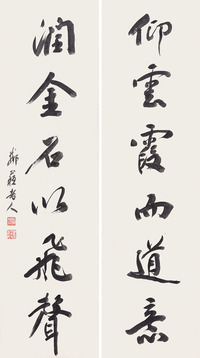 仰雲霞而道意
潤金石以飛聲
鄰蘇老人